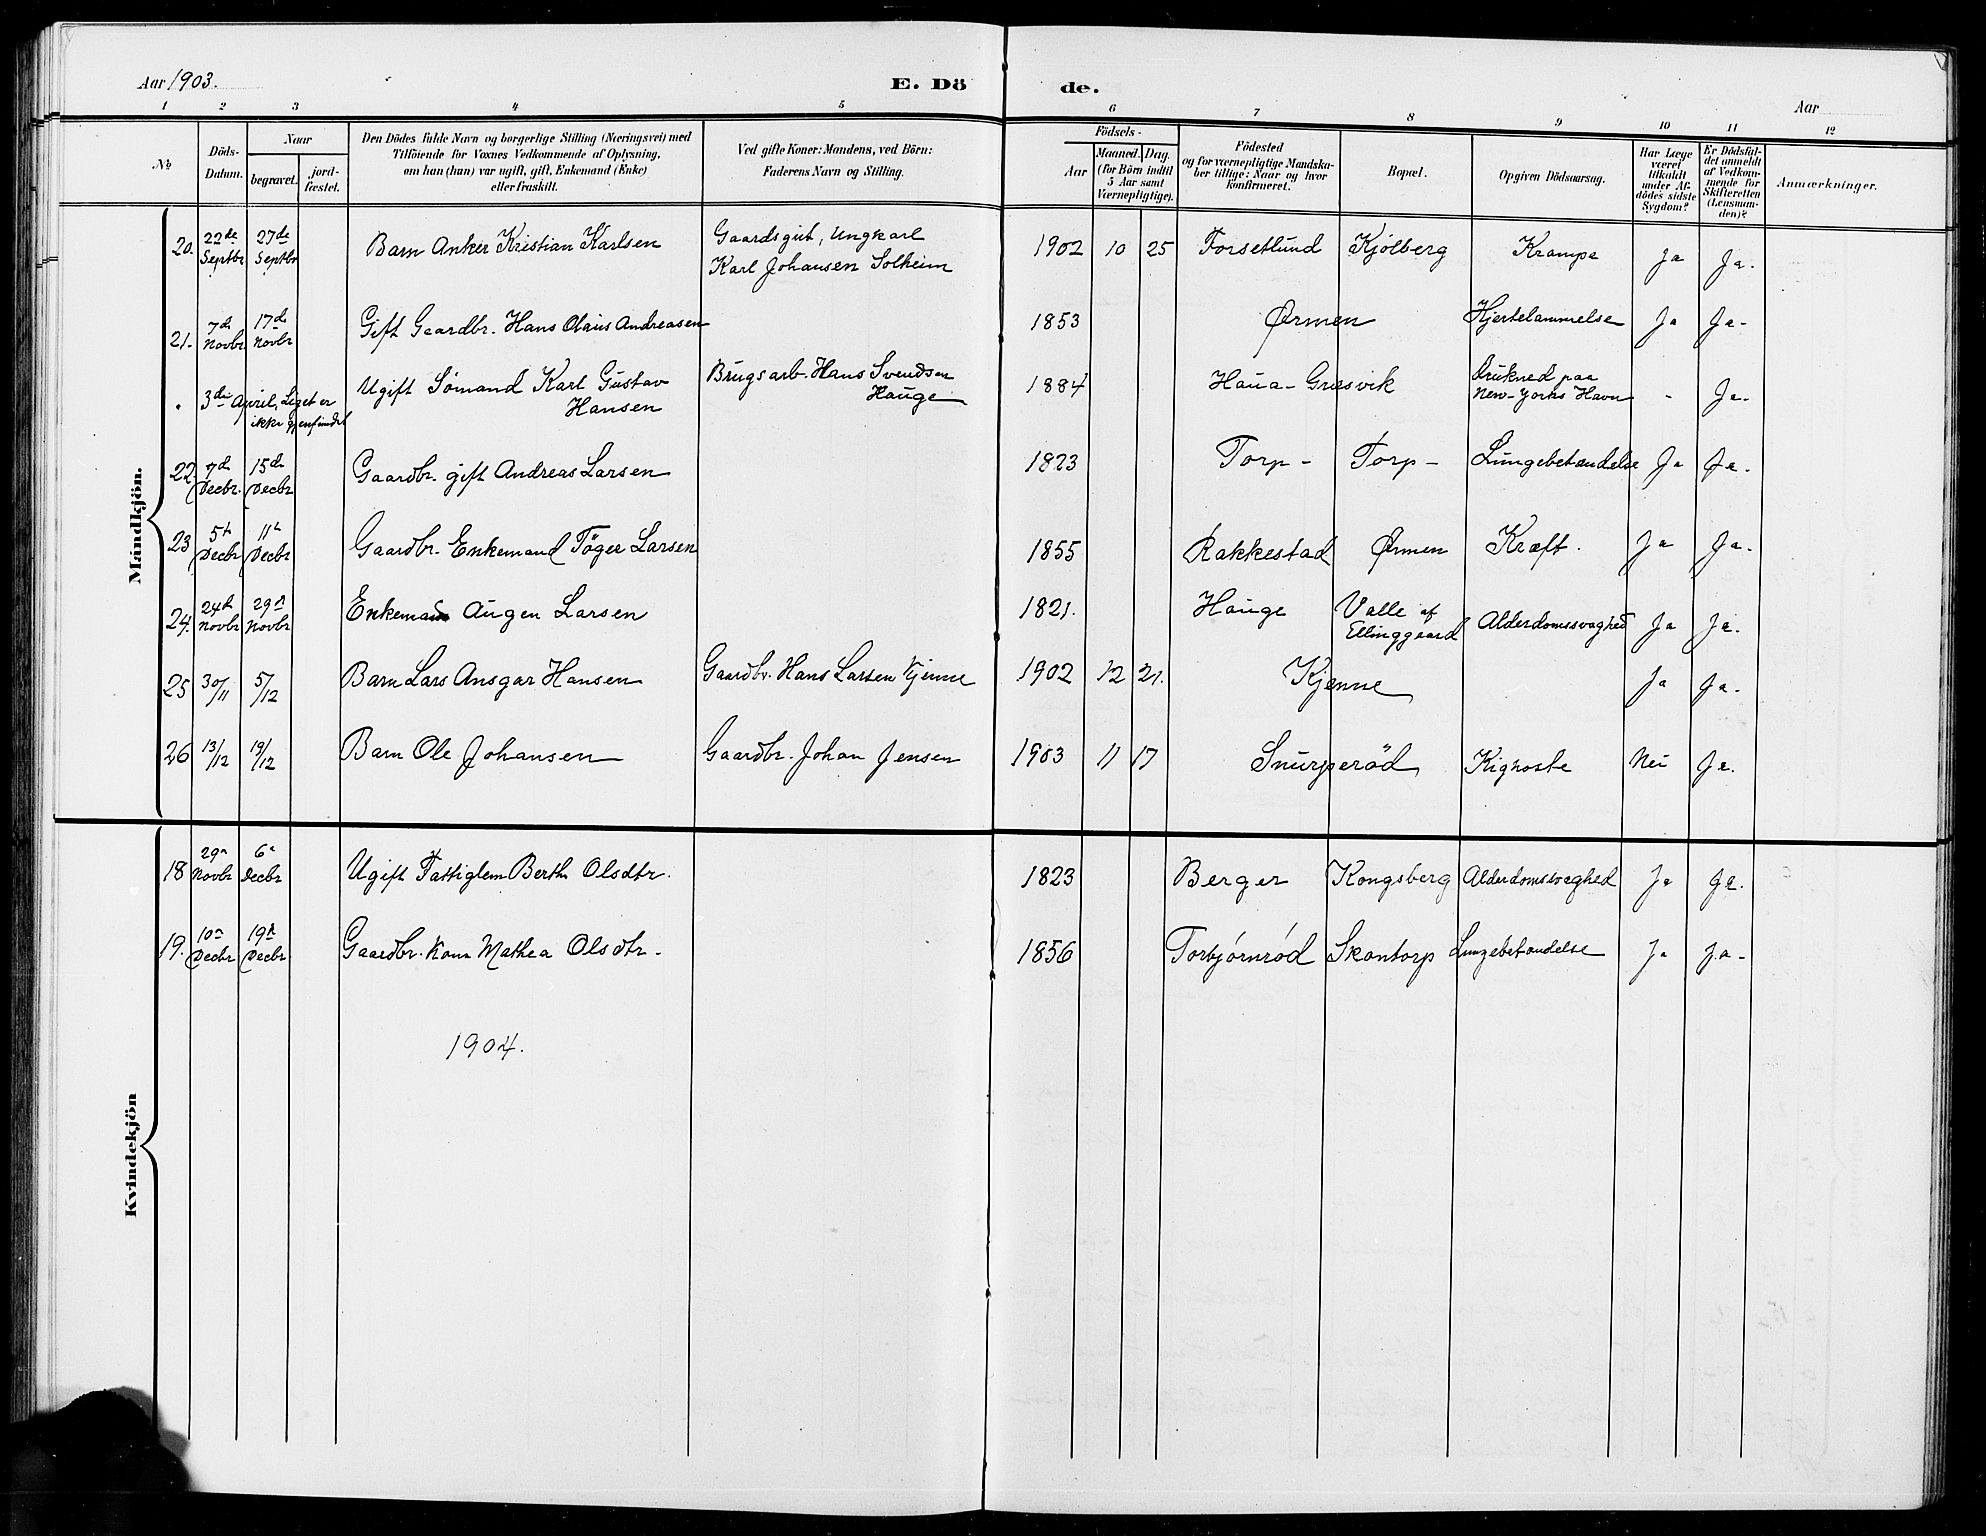 Aar 1903. E. Dö de. Aar
1 2 3 4 5 6 7 8 9 10 11 12
No
Döds-
Datum.
Naar
begravet.
jord-
fæstet.
Den Dödes fulde Navn og borgerlige Stilling (Næringsvei) med
Tilföiende for Voxnes Vedkommende af Oplysning,
om han (hun) var ugift, gift, Enkemand (Enke)
eller fraskilt.
Ved gifte Koner: Mandens, ved Börn:
Faderens Navn og Stilling.
Födsels-
Aar
Maaned. Dag.
(for Börn indtil
5 Aar samt
Værnepligtige).
Födested
og for værnepligtige Mandska-
ber tillige: Naar og hvor
konfirmeret.
Bopæl.
Opgiven Dödsaarsag.
Har Læge
været
tilkaldt
under Af-
dödes sidste
Sygdom?
Er Dödsfal-
det anmeldt
af Vedkom-
mende for
Skifteretten
(Lensman-
den)?
Anmærkninger.
Mandkjön.
20. 22de Septbr 27de Septbr Barn Anker Kristian Karlsen Gaardsgut, Ungkarl
Karl Johansen Solheim 1902 10 25 Forsetlund Kjölberg Krampe Ja Ja.
21. 7de Novbr. 17de Novbr Gift Gaardbr. Hans Olaus Andreasen 1853 Ørmen Hjertelammelse Ja Ja-
" 3die April, Liget er
ikke gjenfundet Ugift Sömand Karl Gustav
Hansen Brugsarb. Hans Svendsen
Hauge 1884 Haua - Gresvik Druknet paa
New-Yorks Havn - Ja.
22 7de Decbr. 15de Decbr Gaardbr. gift Andreas Larsen 1823 Torp - Torp - Lungebetændelse Ja Ja.
23 5te Decbr 11te Decbr Gaardbr. Enkemand Töger Larsen 1855 Rakkestad Ørmen Kræft. Ja Ja.
24. 24de Novbr 29de Novbr Enkemand Augen Larsen 1821. Hauge Valle af
Ellinggaard Alderdomssvaghed Ja Ja.
25 30/11 5/12 Barn Lars Ansgar Hansen Gaardbr. Hans Larsen Kjenne 1902 12 21. Kjenne Ja Ja.
26 13/12 19/12 Barn Ole Johansen Gaardbr. Johan Jensen 1903 11 17 Snurperöd Kighoste Nei Ja.
Kvindekjön
18 29de Novbr 6te Decbr Ugift Fattiglem Berthe Olsdtr. 1823 Berger Kongsberg Alderdomssvaghed Ja Ja.
19. 10de Decbr 19de Decbr Gaardbr. Kone Mathea Olsdtr. 1856 Torbjørnrød Skantorp Lungebetændelse Ja Ja-
1904.